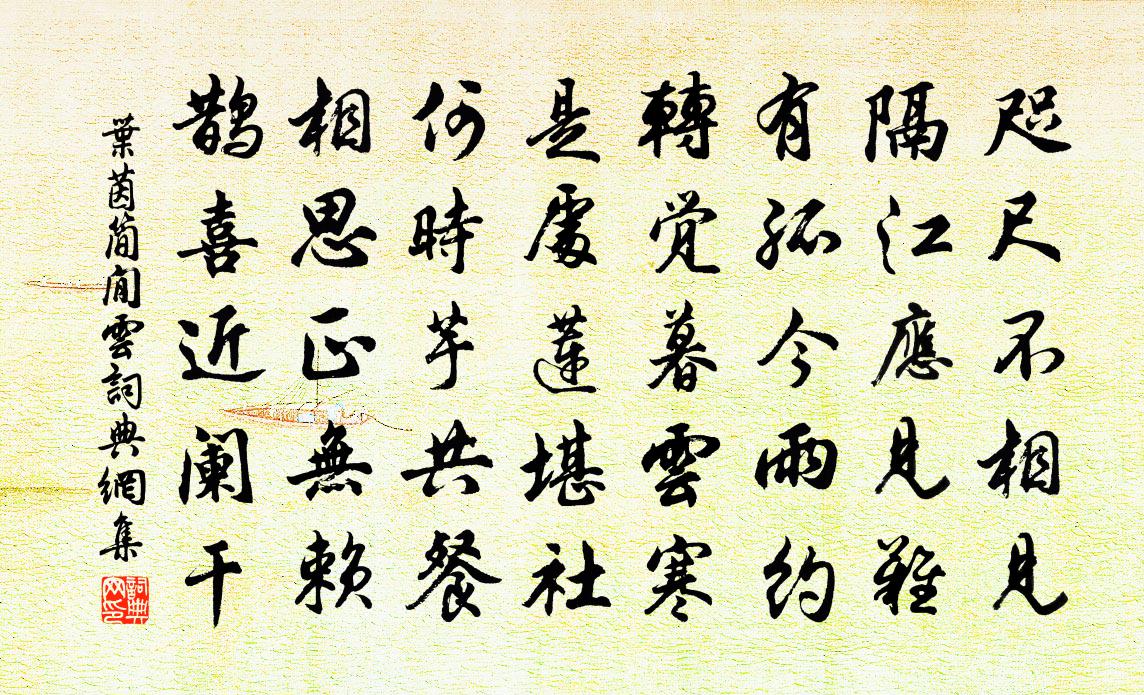 咫尺不相見
隔江應見難
有孤今雨約
轉觉暮雲寒
是處蓮堪社
何時芋共餐
相思正無賴
鵲喜近闌干
葉茵簡閒雲詞典網集
詞典網印